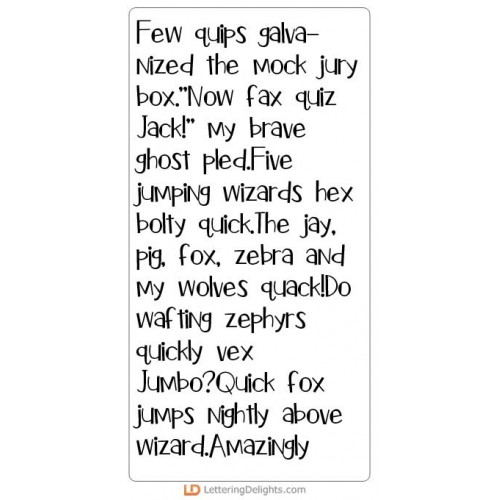 Few quips galva-
nized the mock jury
box."Now fax quiz
Jack!" my brave
ghost pled.Five
jumping wizards hex
bolty quick.The jay,
pig, fox, zebra and
my wolves quack!Do
wafting zephyrs
quickly vex
Jumbo?Quick fox
jumps nightly above
wizard.Amazingly
LD LetteringDelights.com